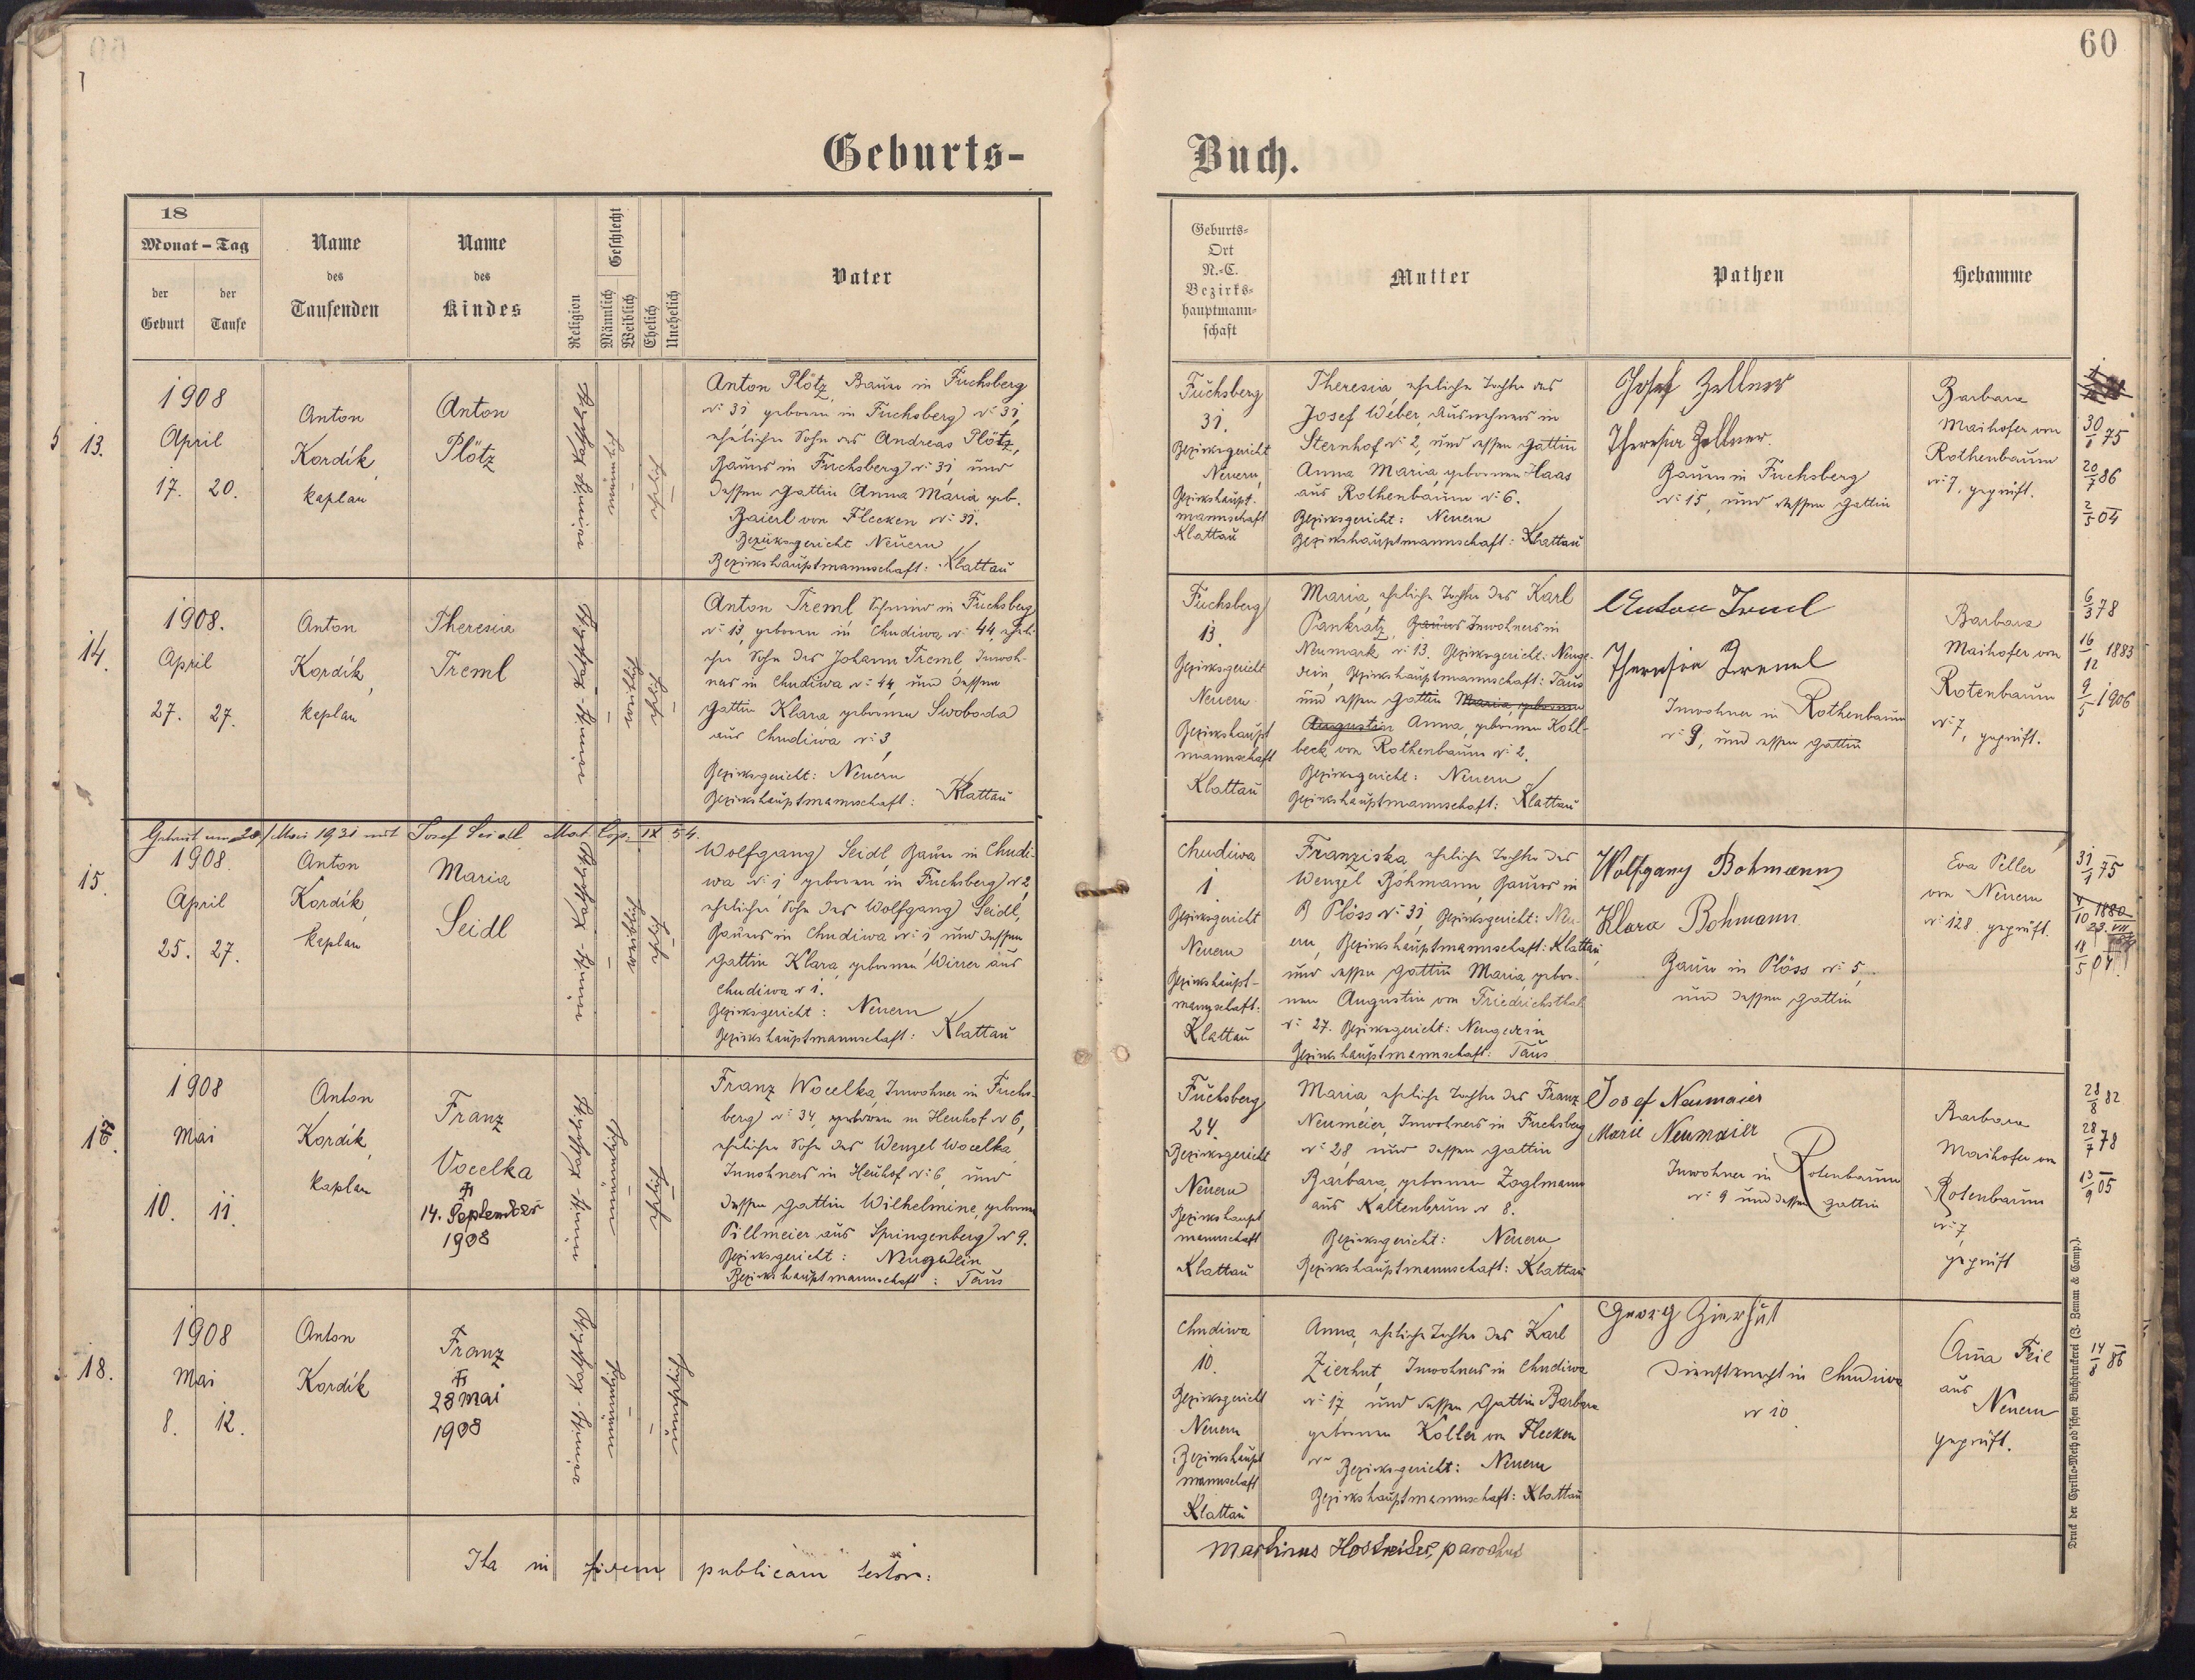 60
Geburts-
Buch.
18
Monat - Tag
der Geburt
der Taufe
Name des Taufenden
Name des Kindes
Religion
Geschlecht
Männlich
Weiblich
Ehelich
Unehelich
Vater
Geburts-
Ort
N.-C.
Bezirks-
hauptmann-
schaft
Mutter
Pathen
Hebamme
13.
1908
April
17. 20.
Anton
Kordík,
kaplan
Anton
Plötz
männlich
ehelich
Anton Plötz, Bauer in Fuchsberg
№ 31 geboren in Fuchsberg № 31,
ehelicher Sohn des Andreas Plötz,
Bauers in Fuchsberg № 31, und
dessen Gattin Anna Maria geb.
Baierl von Flecken № 31.
Bezirksgericht Neuern
Bezirkshauptmannschaft: Klattau
Fuchsberg
31.
Bezirksgericht
Neuern,
Bezirkshaupt-
mannschaft
Klattau
Theresia, eheliche Tochter des
Josef Weber, Ausnehmers in
Sternhof № 2, und dessen Gattin
Anna Maria, geborenen Haas
aus Rothenbaum № 6.
Bezirksgericht: Neuern
Bezirkshauptmannschaft: Klattau
Josef Zellner
Theresia Zellner.
Bauer in Fuchsberg
№ 15, und dessen Gattin
Barbara
Maihofer von
Rothenbaum
№ 7, geprüft.
30/8 75
20/7 86
2/5 04
14.
1908.
April
27. 27.
Anton
Kordík,
kaplan
Theresia
Treml
weiblich
ehelich
Anton Treml, Schmied in Fuchsberg
№ 13, geboren in Chudiwa № 44, eheli-
cher Sohn des Johann Treml, Inwoh-
ners in Chudiwa № 44, und dessen
Gattin Klara, geborenen Swoboda
aus Chudiwa № 3,
Bezirksgericht: Neuern
Bezirkshauptmannschaft: Klattau
Fuchsberg
13.
Bezirksgericht
Neuern
Bezirkshaupt
mannschaft
Klattau
Maria, eheliche Tochter des Karl
Pankratz, Bauers Inwohners in
Neumark № 13. Bezirksgericht: Neuge-
dein, Bezirkshauptmannschaft: Taus
und dessen Gattin Maria, geborenen
Augustin Anna, geborenen Kohl-
beck von Rothenbaum № 2.
Bezirksgericht: Neuern
Bezirkshauptmannschaft: Klattau
Anton Treml
Theresia Treml
Inwohner in Rothenbaum
№ 9, und dessen Gattin
Barbara
Maihofer von
Rotenbaum
№ 7, geprüft.
6/3 78
16/12 1883
9/5 1906
Getraut am 20/Mai 1931 mit Josef Seidl Mat. Cop. IX 54.
15.
1908.
April
25. 27.
Anton
Kordík,
kaplan
Maria
Seidl
weiblich
ehelich
Wolfgang Seidl, Bauer in Chudi-
wa № 1 geboren in Fuchsberg № 2,
ehelicher Sohn des Wolfgang Seidl,
Bauers in Chudiwa № 1 und dessen
Gattin Klara, geborenen Wirrer aus
Chudiwa № 1.
Bezirksgericht: Neuern
Bezirkshauptmannschaft: Klattau
Chudiwa
1
Bezirksgericht
Neuern
Bezirkshaupt-
mannschaft:
Klattau
Franziska, eheliche Tochter des
Wenzel Bohmann, Bauers in
Plöss № 31, Bezirksgericht: Neu-
ern, Bezirkshauptmannschaft: Klattau,
und dessen Gattin Maria, gebor-
nen Augustin von Friedrichsthal
№ 27. Bezirksgericht: Neugedein
Bezirkshauptmannschaft: Taus
Wolfgang Bohmann
Klara Bohmann
Bauer in Plöss № 5,
und dessen Gattin
Eva Peller
von Neuern
№ 128. geprüft.
31/1 75
4/10 1880
18/5 07.
1908
Mai
10. 11.
Anton
Kordík,
kaplan
Franz
Vocelka
14. September
1908
männlich
ehelich
Franz Wocelka, Inwohner in Fuchs-
berg № 34, geboren in Heuhof № 6,
ehelicher Sohn des Wenzel Wocelka
Inwohners in Heuhof № 6, und
dessen Gattin Wilhelmine, geborene
Pillmeier aus Springenberg № 9.
Bezirksgericht: Neugedein
Bezirkshauptmannschaft: Taus
Fuchsberg
24.
Bezirksgericht
Neuern
Bezirkshaupt
mannschaft
Klattau
Maria, eheliche Tochter des Franz
Neumeier, Inwohners in Fuchsberg
№ 28 und dessen Gattin
Barbara, geborenen Zoglmann
aus Kaltenbrun № 8.
Bezirksgericht: Neuern
Bezirkshauptmannschaft: Klattau
Josef Neumaier
Marie Neumaier
Inwohner in Rotenbaum
№ 9 und dessen Gattin
Barbara
Maihofer von
Rotenbaum
№ 7,
geprüft
28/8 82
28/7 78
13/9 05
18.
1908
Mai
8. 12.
Anton
Kordík
Franz
28 Mai
1908
männlich
unehelich
Chudiwa
10.
Bezirksgericht
Neuern
Bezirkshaupt
mannschaft
Klattau
Anna, eheliche Tochter des Karl
Zierhut, Inwohners in Chudiwa
№ 17, und dessen Gattin Barbara
geborenen Koller von Flecken
№ Bezirksgericht: Neuern
Bezirkshauptmannschaft: Klattau
Georg Zierhut
Dienstknecht in Chudiwa
№ 10.
Anna Feil
aus
Neuern
geprüft.
14/8 86
Ita in fidem publicam testor:
Martinus Hostreiter, parochus
Druck der Cyrillo-Method'schen Buchdruckerei (J. Zeman & Comp.).